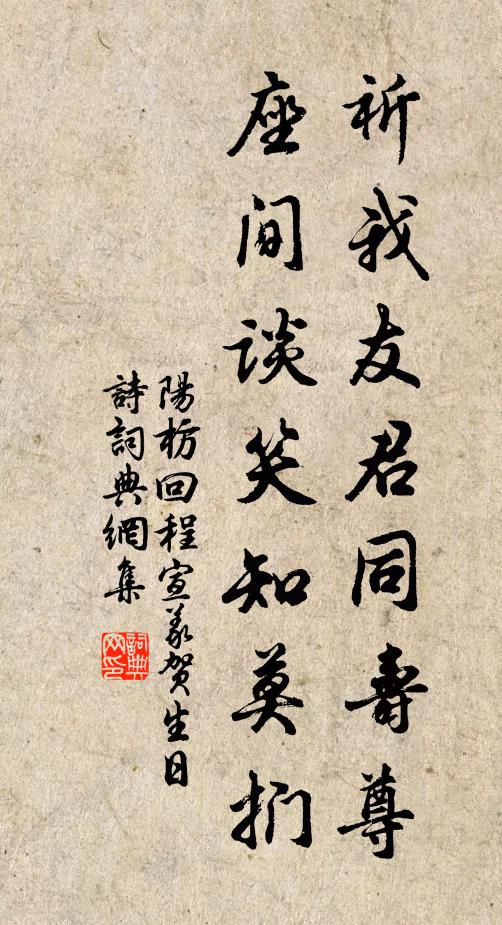 祈我友君同壽尊
座间谈笑知莫捫
陽枋回程宣義贺生日
詩詞典網集
詞典网印